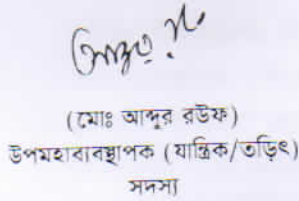 (মোঃ আব্দুর রউফ)
উপমহাব্যবস্থাপক (যান্ত্রিক/তড়িৎ)
সদস্য